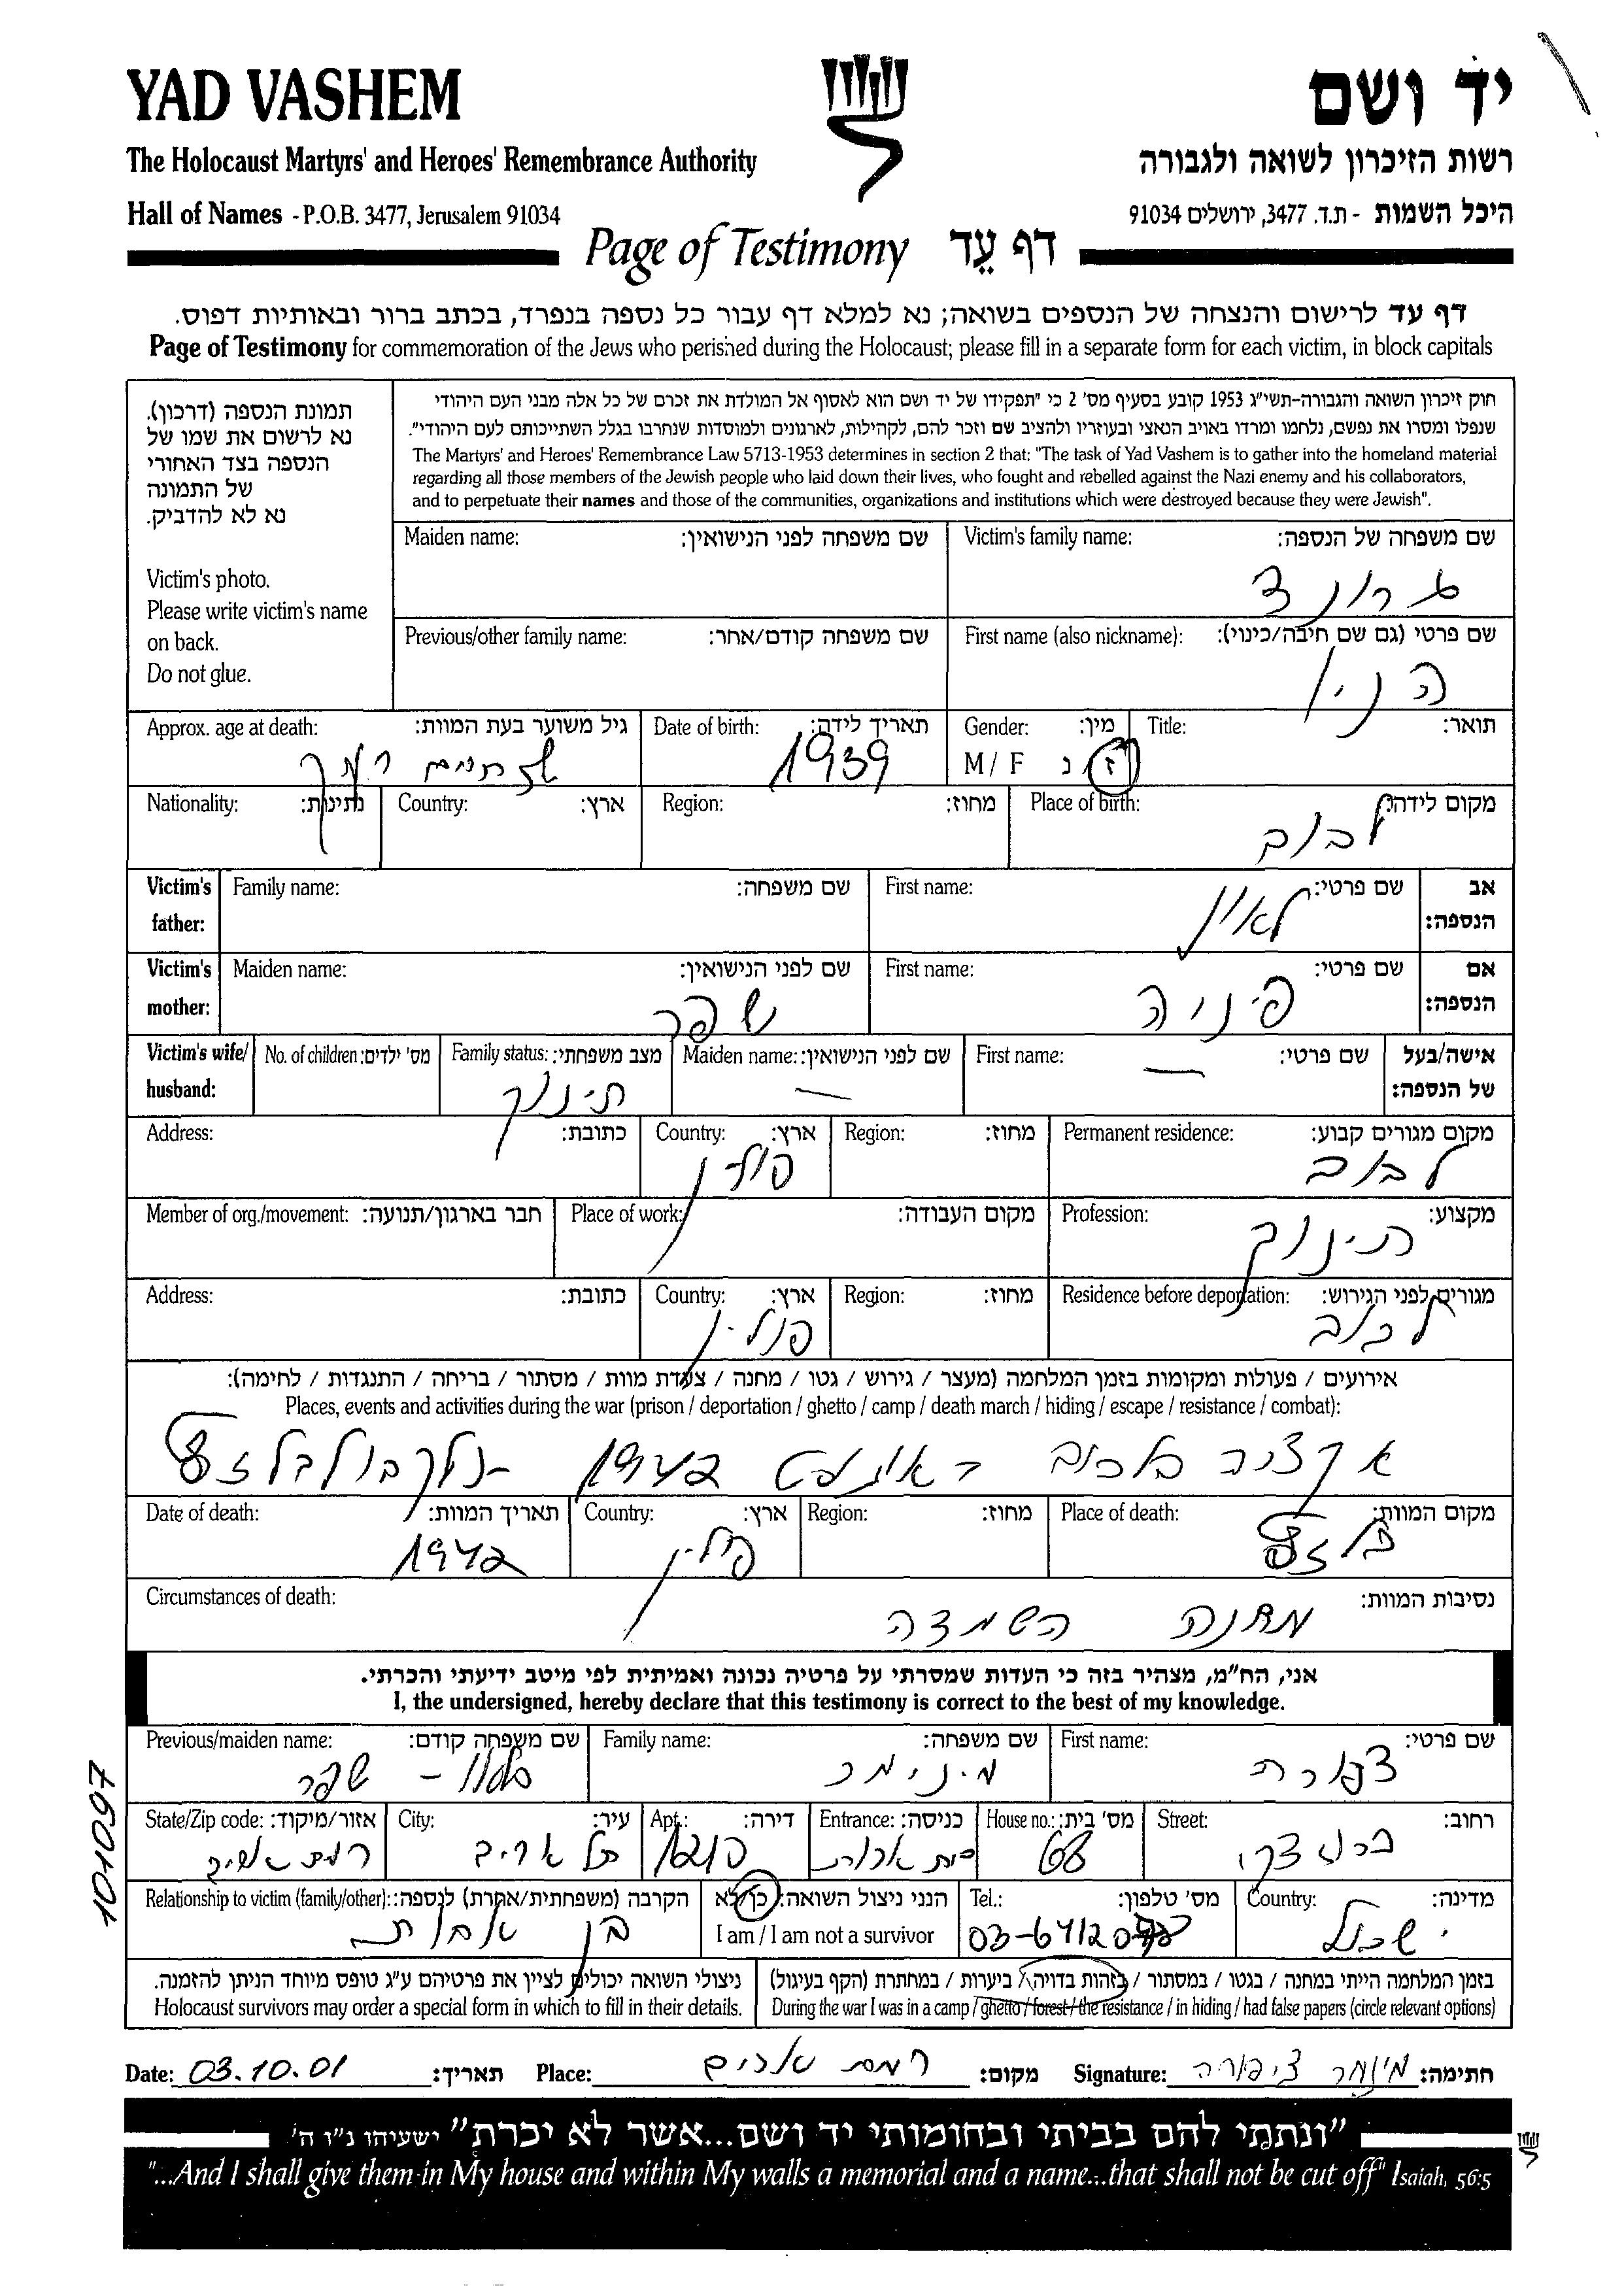 YAD VASHEM
יד ושם
The Holocaust Martyrs' and Heroes' Remembrance Authority
רשות הזיכרון לשואה ולגבורה
Hall of Names - P.O.B. 3477, Jerusalem 91034
היכל השמות - ת.ד. 3477, ירושלים 91034
Page of Testimony דף עֵד
דף עד לרישום והנצחה של הנספים בשואה; נא למלא דף עבור כל נספה בנפרד, בכתב ברור ובאותיות דפוס.
Page of Testimony for commemoration of the Jews who perished during the Holocaust; please fill in a separate form for each victim, in block capitals
תמונת הנספה (דרכון).
נא לרשום את שמו של
הנספה בצד האחורי
של התמונה
נא לא להדביק.
Victim's photo.
Please write victim's name
on back.
Do not glue.
חוק זיכרון השואה והגבורה-תשי"ג 1953 קובע בסעיף מס' 2 כי "תפקידו של יד ושם הוא לאסוף אל המולדת את זכרם של כל אלה מבני העם היהודי
שנפלו ומסרו את נפשם, נלחמו ומרדו באויב הנאצי ובעוזריו ולהציב שם וזכר להם, לקהילות, לארגונים ולמוסדות שנחרבו בגלל השתייכותם לעם היהודי".
The Martyrs' and Heroes' Remembrance Law 5713-1953 determines in section 2 that: "The task of Yad Vashem is to gather into the homeland material
regarding all those members of the Jewish people who laid down their lives, who fought and rebelled against the Nazi enemy and his collaborators,
and to perpetuate their names and those of the communities, organizations and institutions which were destroyed because they were Jewish".
Maiden name: שם משפחה לפני הנישואין:
Victim's family name: שם משפחה של הנספה:
גרונד
Previous/other family name: שם משפחה קודם/אחר:
First name (also nickname): שם פרטי (גם שם חיבה/כינוי):
הניו
Approx. age at death: גיל משוער בעת המוות:
שנתיים וחצי
Date of birth: תאריך לידה:
1939
Gender: מין:
M / F ז נ
Title: תואר:
Nationality: נתינות:
Country: ארץ:
Region: מחוז:
Place of birth: מקום לידה:
לבוב
Victim's father:
Family name: שם משפחה:
First name: שם פרטי:
לאון
אב הנספה:
Victim's mother:
Maiden name: שם לפני הנישואין:
שפר
First name: שם פרטי:
פניה
אם הנספה:
Victim's wife/ husband:
No. of children: מס' ילדים:
Family status: מצב משפחתי:
תינוק
Maiden name: שם לפני הנישואין:
—
First name: שם פרטי:
—
אישה/בעל של הנספה:
Address: כתובת:
Country: ארץ:
פולין
Region: מחוז:
Permanent residence: מקום מגורים קבוע:
לבוב
Member of org./movement: חבר בארגון/תנועה:
Place of work: מקום העבודה:
Profession: מקצוע:
תינוק
Address: כתובת:
Country: ארץ:
פולין
Region: מחוז:
Residence before deportation: מגורים לפני הגירוש:
לבוב
אירועים / פעולות ומקומות בזמן המלחמה (מעצר / גירוש / גטו / מחנה / צעדת מוות / מסתור / בריחה / התנגדות / לחימה):
Places, events and activities during the war (prison / deportation / ghetto / camp / death march / hiding / escape / resistance / combat):
אקציה בלבוב באוגוסט 1942 בלזץ
Date of death: תאריך המוות:
1942
Country: ארץ:
פולין
Region: מחוז:
Place of death: מקום המוות:
בלזץ
Circumstances of death: נסיבות המוות:
מחנה השמדה
אני, הח"מ, מצהיר בזה כי העדות שמסרתי על פרטיה נכונה ואמיתית לפי מיטב ידיעתי והכרתי.
I, the undersigned, hereby declare that this testimony is correct to the best of my knowledge.
Previous/maiden name: שם משפחה קודם:
שפר
Family name: שם משפחה:
מינימר
First name: שם פרטי:
צפורה
State/Zip code: אזור/מיקוד:
רמת אביב
City: עיר:
תל אביב
Apt.: דירה:
Entrance: כניסה:
House no.: מס' בית:
68
Street: רחוב:
ברודצקי
Relationship to victim (family/other): הקרבה (משפחתית/אחרת) לנספה:
בן אחות
הנני ניצול השואה: כן/לא
I am / I am not a survivor
Tel.: מס' טלפון:
Country: מדינה:
ישראל
ניצולי השואה יכולים לציין את פרטיהם ע"ג טופס מיוחד הניתן להזמנה.
Holocaust survivors may order a special form in which to fill in their details.
בזמן המלחמה הייתי במחנה / בגטו / במסתור / בזהות בדויה / ביערות / במחתרת (הקף בעיגול)
During the war I was in a camp / ghetto / forest / the resistance / in hiding / had false papers (circle relevant options)
Date: 03.10.01 תאריך: Place: רמת אביב מקום: Signature: מינימר ציפורה חתימה:
"ונתתי להם בביתי ובחומותי יד ושם...אשר לא יכרת" ישעיהו נ"ו ה'
"...And I shall give them in My house and within My walls a memorial and a name...that shall not be cut off" Isaiah, 56:5
101097